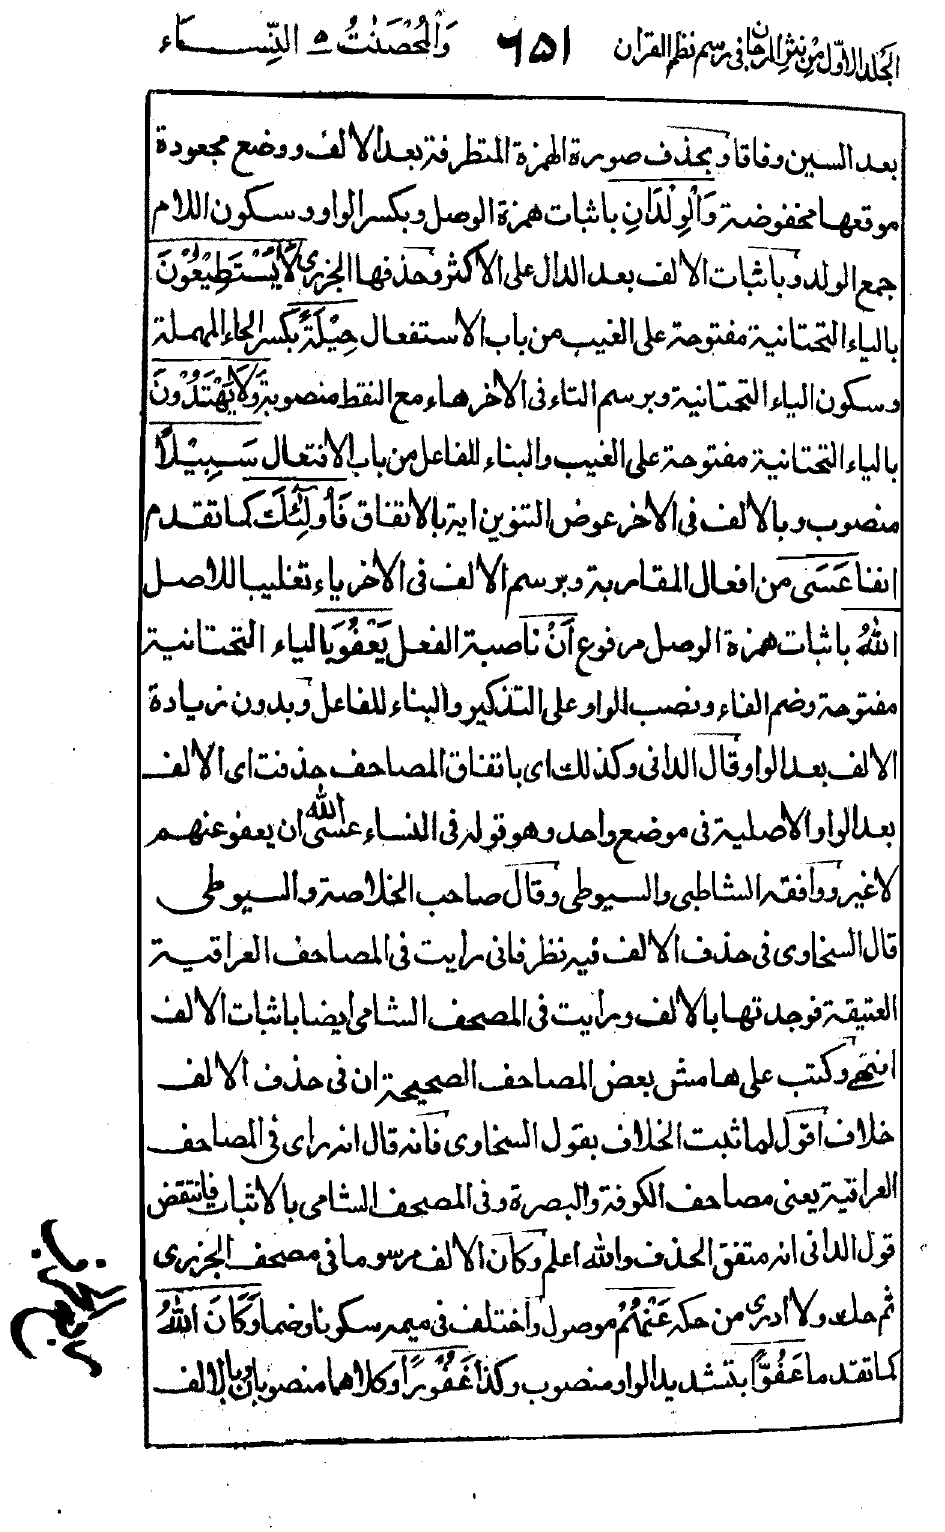 الجلد الاول من نثر المرجان فى رسم نظم القران ٦٥١ وَالمُحْصَنٰتُ ٥ النِّسَاء
بعد السين وفاقا وبحذف صورة الهمزة المتطرفة بعد الالف ووضع مجعودة
موقعها مخفوضة وَالْوِلْدَانِ باثبات همزة الوصل وبكسر الواو وسكون اللام
جمع الولد وباثبات الالف بعد الدال على الاكثر وحذفها الجزرى لَا يَسْتَطِيْعُوْنَ
بالياء التحتانية مفتوحة على الغيب من باب الاستفعال حِيْلَةً بكسر الحاء المهملة
وسكون الياء التحتانية وبرسم التاء فى الاخر هاء مع النقط منصوبة وَلَا يَهْتَدُوْنَ
بالياء التحتانية مفتوحة على الغيب والبناء للفاعل من باب الافتعال سَبِيْلًا
منصوب وبالالف فى الاخر عوض التنوين اية بالاتفاق فَأُولٰٓئِكَ كما تقدم
انفا عَسَى من افعال المقاربة وبرسم الالف فى الاخر ياء تغليبا للاصل
اللهُ باثبات همزة الوصل مرفوع أَنْ ناصبة الفعل يَعْفُوَ بالياء التحتانية
مفتوحة وضم الفاء ونصب الواو على التذكير والبناء للفاعل وبدون زيادة
الالف بعد الواو وقال الدانى وكذلك اى باتفاق المصاحف حذفت اى الالف
بعد الواو الاصلية فى موضع واحد وهو قوله فى النساء عسى الله ان يعفو عنهم
لا غير ووافقه الشاطبى والسيوطى وقال صاحب الخلاصة والسيوطى
قال السخاوى فى حذف الالف فيه نظر فانى رأيت فى المصاحف العراقية
العتيقة فوجدتها بالالف ورأيت فى المصحف الشامى ايضا باثبات الالف
انتهى وكتب على هامش بعض المصاحف الصحيحة ان فى حذف الالف
خلاف اقول لما ثبت الخلاف بقول السخاوى فانه قال انه راى فى المصاحف
العراقية يعنى مصاحف الكوفة والبصرة وفى المصحف الشامى بالاثبات فانتقض
قول الدانى انه متفق الحذف والله اعلم وكان الالف مرسوما فى مصحف الجزرى
ثم حك ولا ادرى من حكه عَنْهُمْ موصول واختلف فى ميمه سكونا وضما وَكَانَ اللهُ
كما تقدم ما عَفُوًّا بتشديد الواو منصوب وكذا غَفُوْرًا وكلاهما منصوبان وبالالف